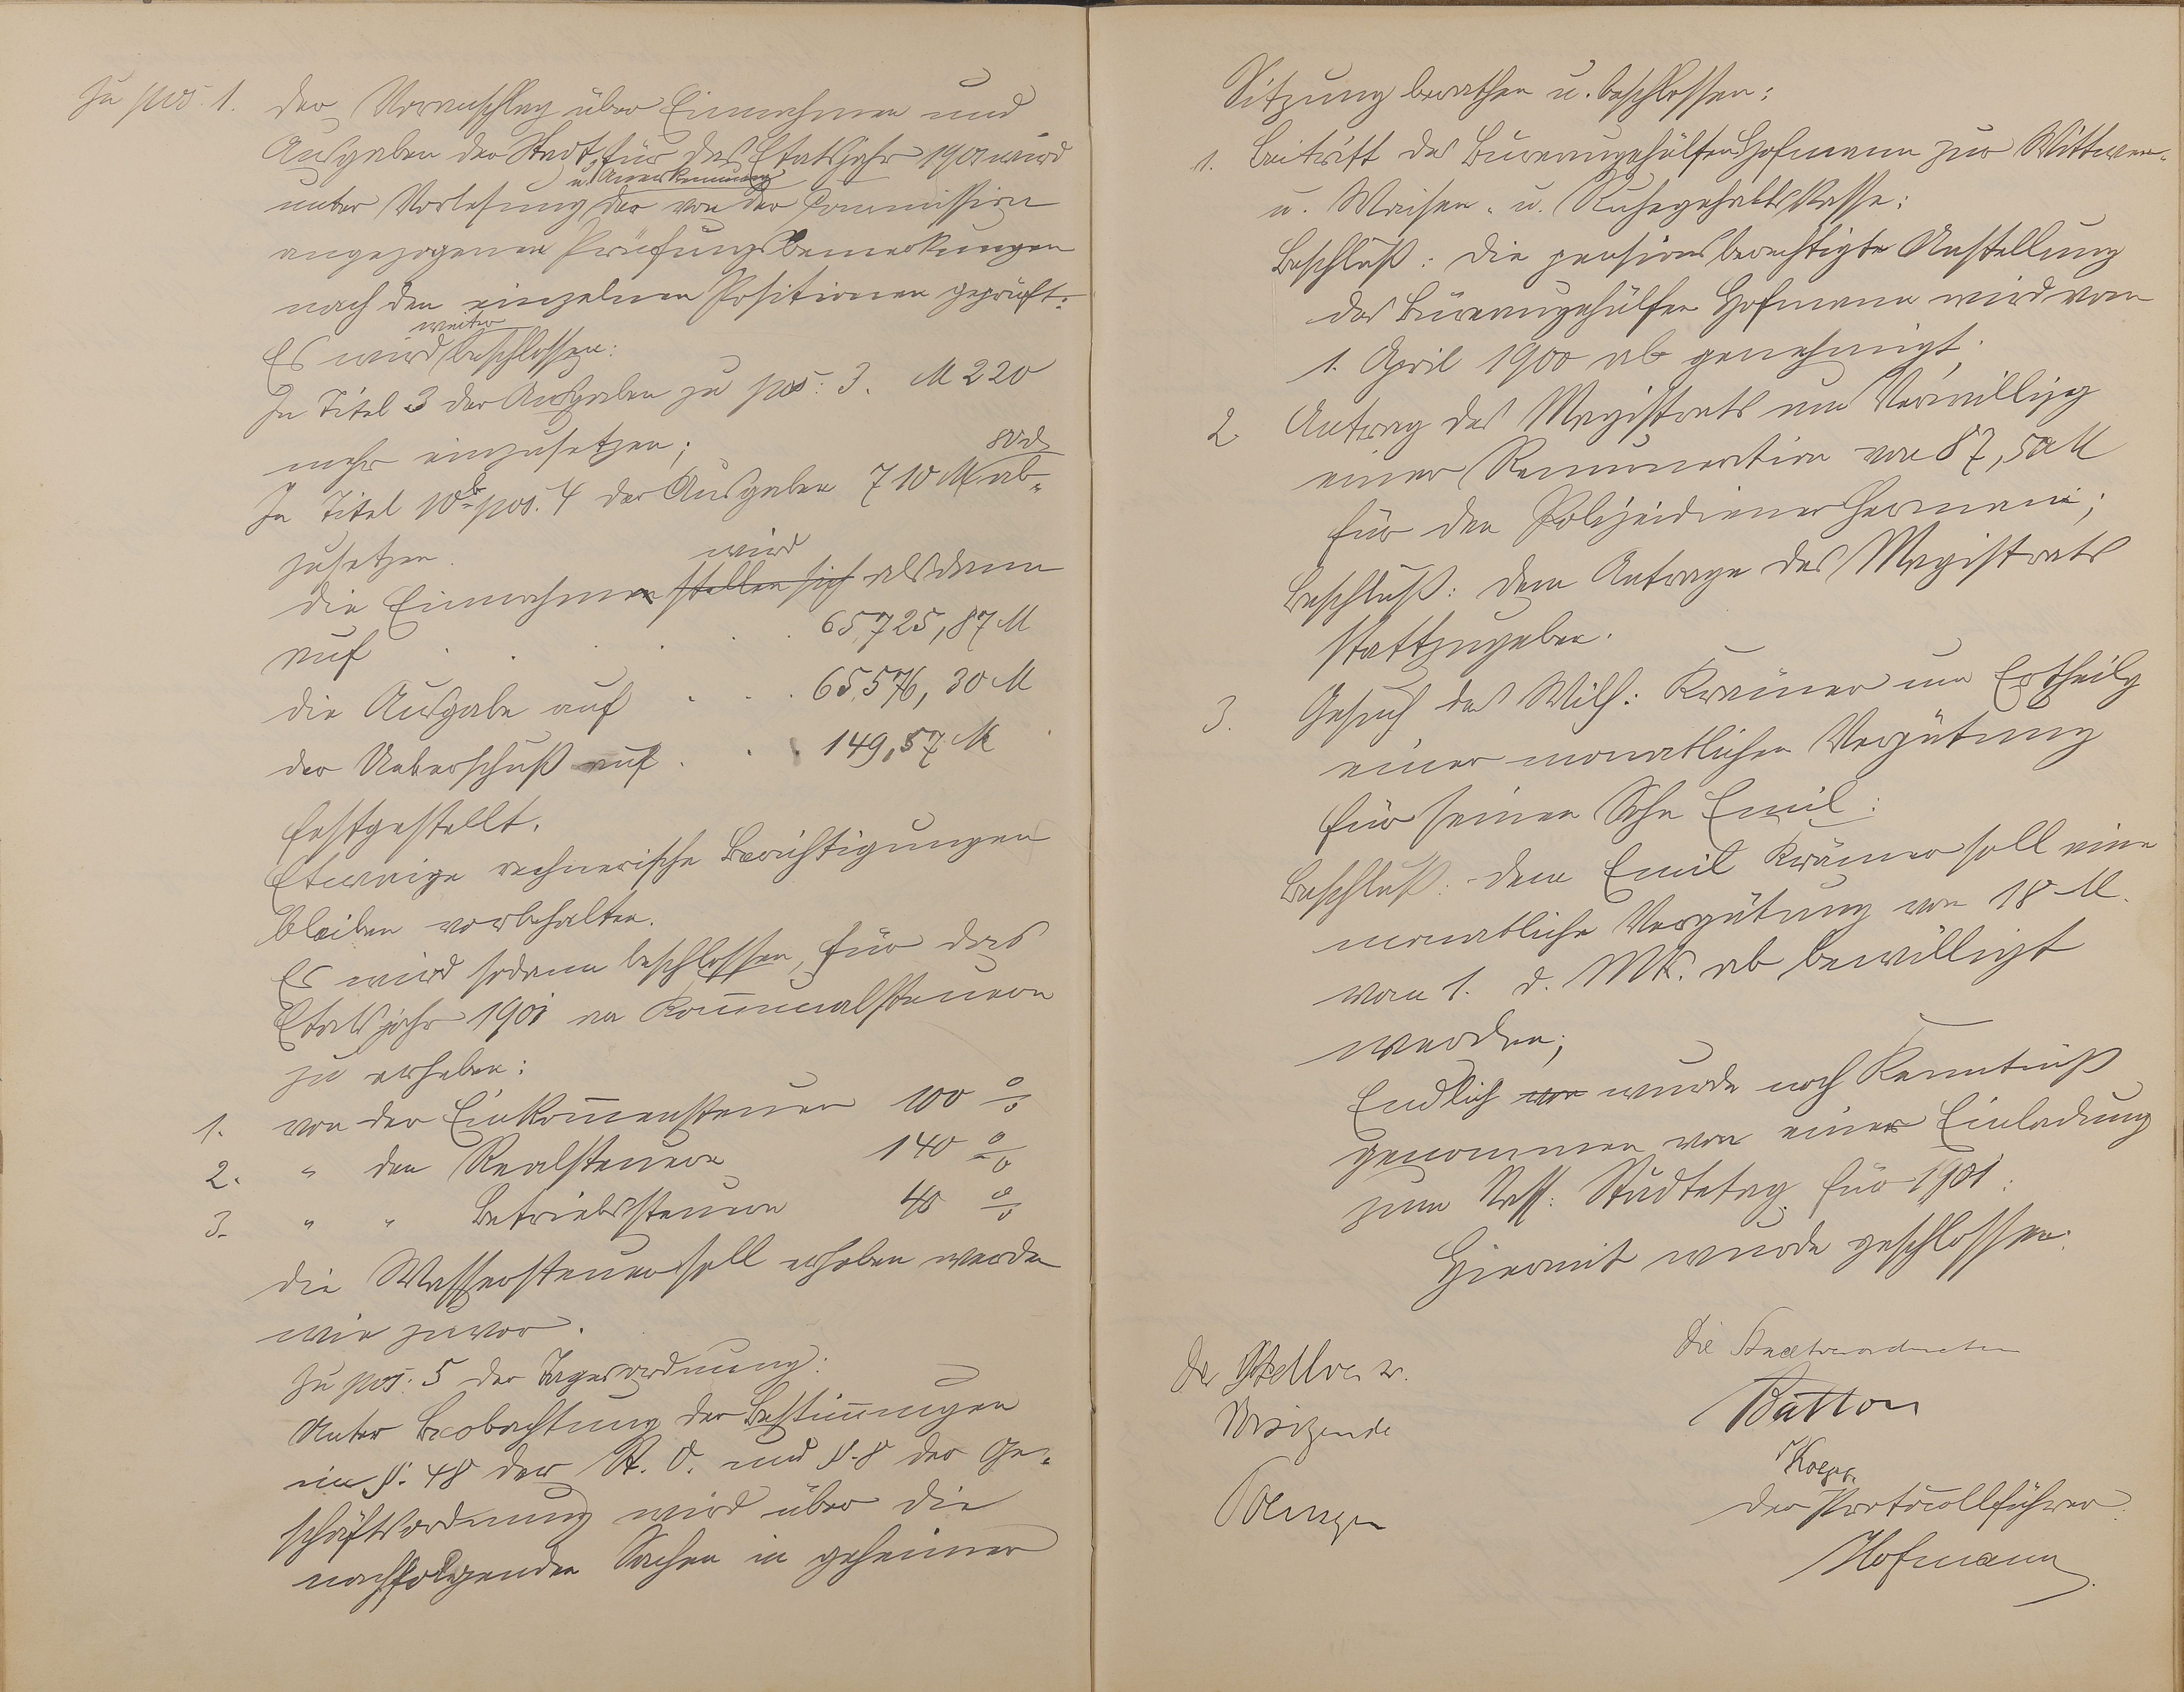 Zu pos. 1. Der Voranschlag über Einnahmen und
Ausgaben der Stadt, für das Etatsjahr 1901 wird
u. Anerkennung
unter Vorlesung der von der Commission
angezogenen Prüfungsbemerkungen
nach den einzelnen Positionen geprüft.
weiter
Es wird beschlossen:
In Titel 3 der Ausgaben zu pos: 3. M 220
mehr einzusetzen;
In Titel 10b pos. 4 der Ausgaben 710 M ab-
zusetzen.
wird
Die Einnahmen stellen sich alsdann
auf . . . . 65,725,87 M
die Ausgabe auf . . . 65576,30 M
der Ueberschuß auf . . . 149,57 M
festgestellt.
Etwaige rechnerische Berichtigungen
bleiben vorbehalten.
Es wird sodann beschlossen, für das
Etatsjahr 1901 an Kom̄unalsteuern
zu erheben:
1. von der Einkom̄ensteuer 100 %
2. " den Realsteuern 140 %
3. " " Betriebssteuern 40 %
Die Wassersteuer soll erhoben werden
wie zuvor.
Zu pos: 5 der Tagesordnung:
Unter Beobachtung der Bestim̄ungen
im §. 48 der St. O. und §. 8 der Ge-
schäftsordnung wird über die
nachfolgenden Sachen in geheimer
Sitzung berathen u. beschlossen:
1. Beitritt des Bureaugehülfen Hofmann zur Wittwen-
u. Waisen- u. Ruhegehaltskasse:
Beschluß: Die pensionsberechtigte Anstellung
des Büreaugehülfen Hofmann wird vom
1. April 1900 ab genehmigt.
2. Antrag des Magistrats um Verwilligg
einer Remuneration von 87,50 M
für den Polizeidiener Hermani;
Beschluß: Dem Antrage des Magistrats
stattzugeben.
3. Gesuch des Wilh: Krämer um Ertheilg
einer monatlichen Vergütung
für seinen Sohn Emil:
Beschluß: Dem Emil Krämer soll eine
monatliche Vergütung von 18 M.
vom 1. d. Mts. ab bewilligt
werden;
Endlich von wurde noch Kenntniß
genommen von einer Einladung
zum Nass: Städtetag für 1901.
Hiermit wurde geschlossen.
Der Stellv.
Vorsitzende
Die Stadtverordneten
Batton
Der Protocollführer:
Hofmann